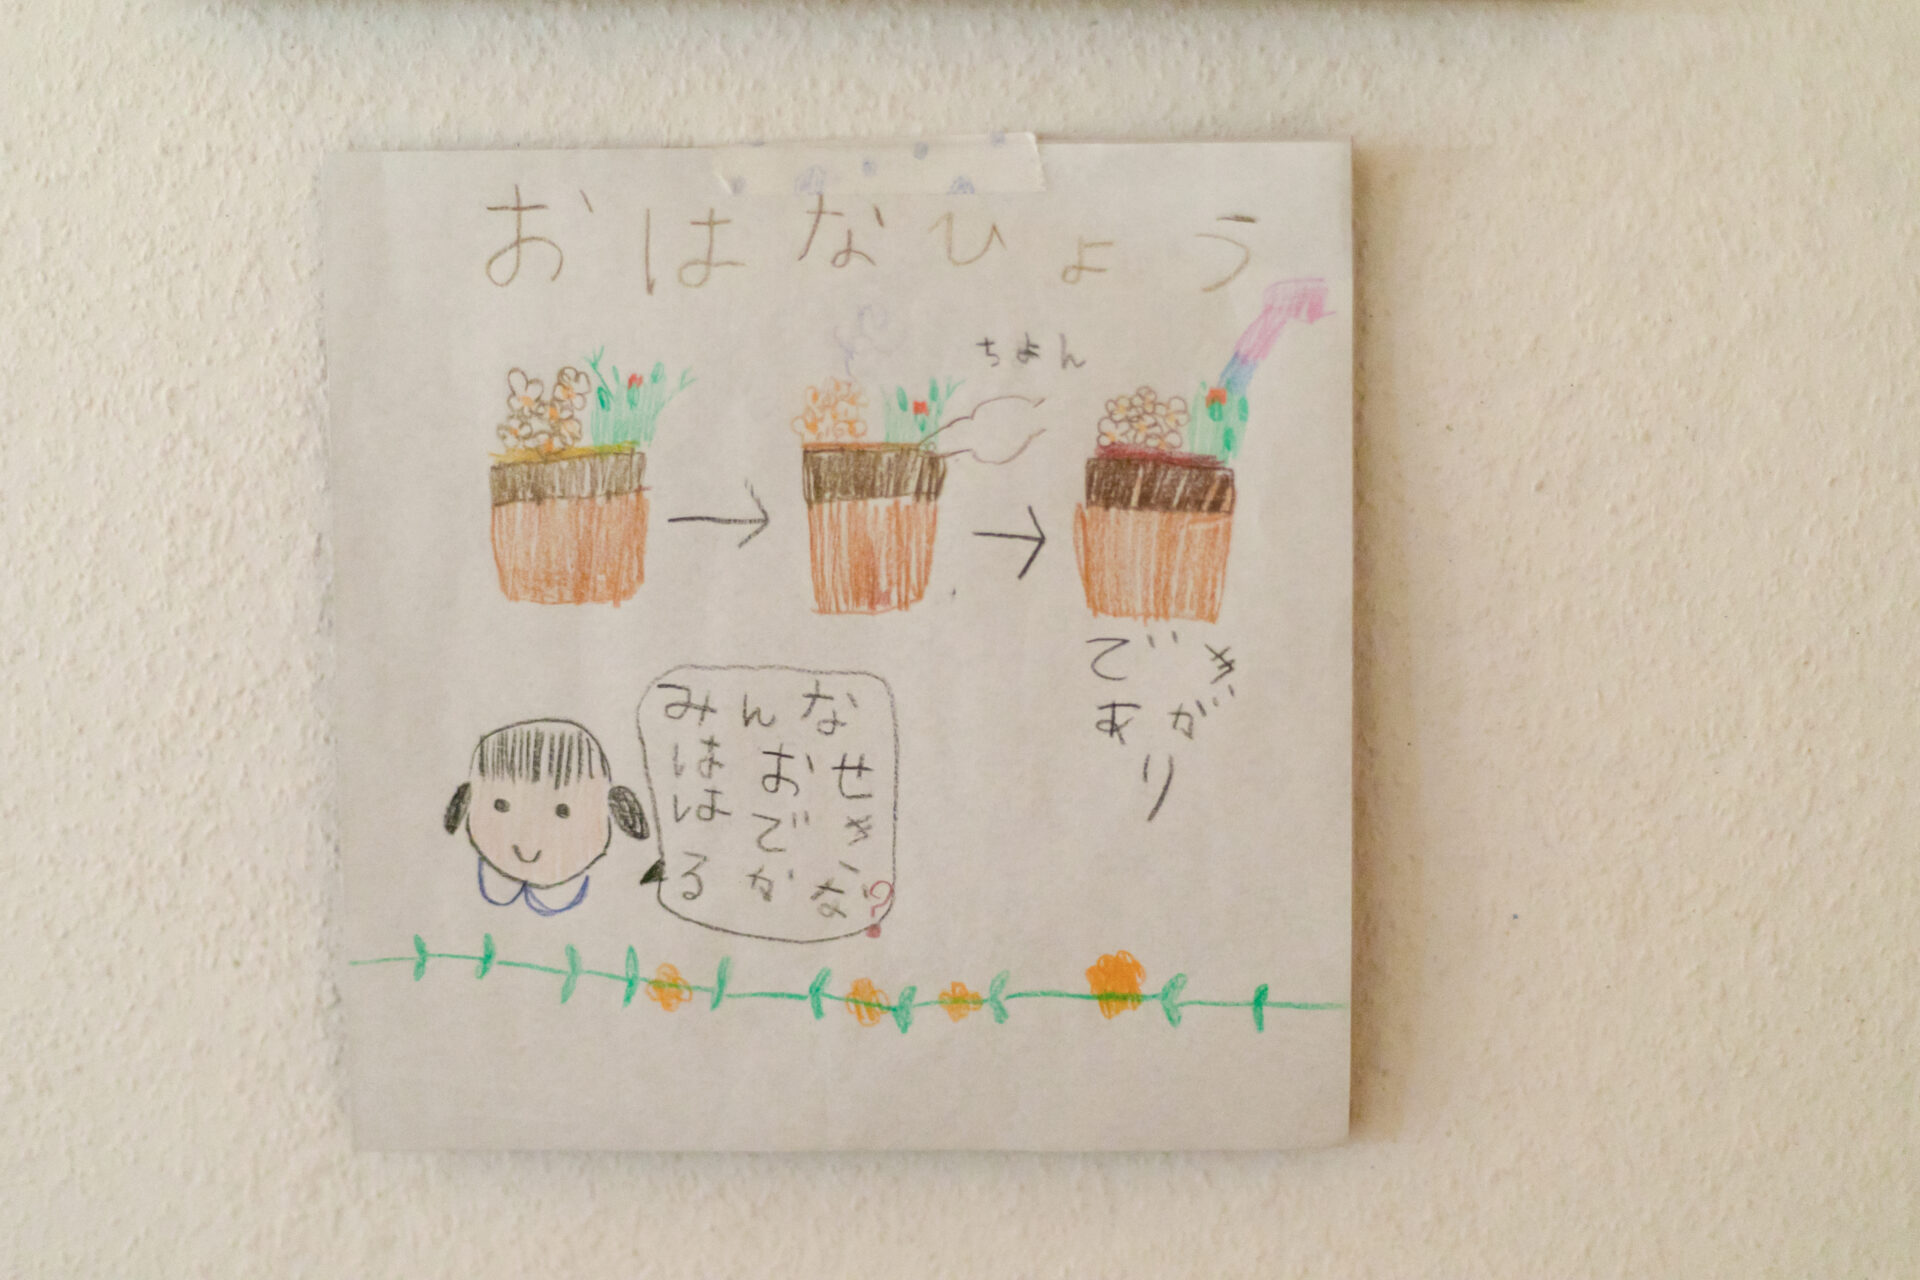 おはなひょう
ちょん
でき
あが
り
みんな
はおせ
はでき
るかな?